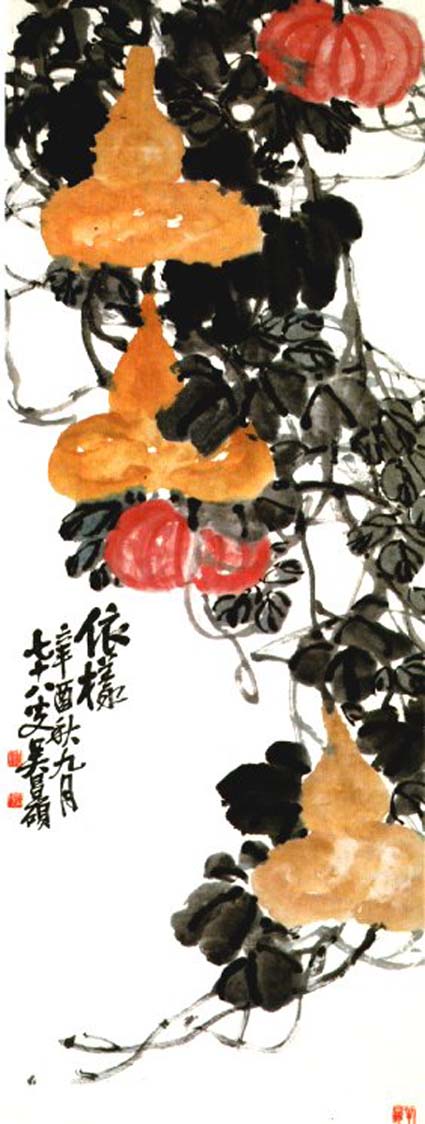 依樣
辛酉秋九月
七十八叟吴昌碩